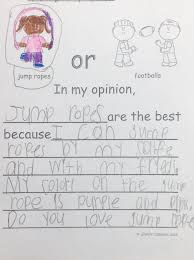 or
jump ropes footballs
In my opinion,
Jump ropes are the best
because I can Jump
ropes by my selfe
and with my friend.
My colors on the Jump
rope is purple and pink.
Do you love jump ropes